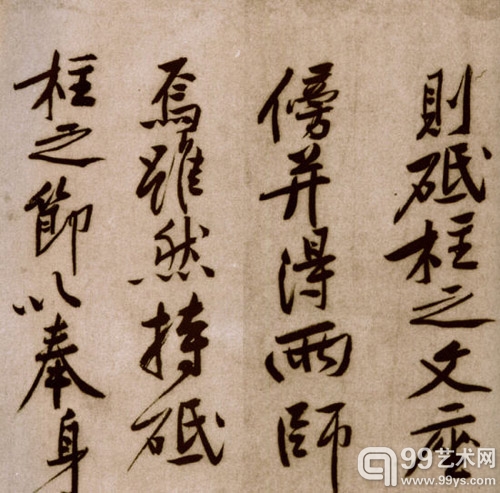 則砥柱之文座
傍并得兩師
焉雖然持砥
柱之節以奉身
99艺术网
www.99ys.com